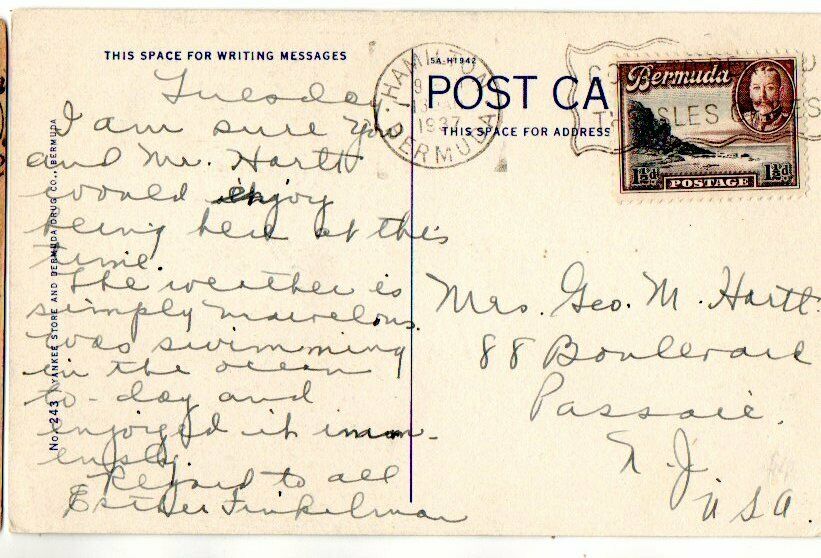 THIS SPACE FOR WRITING MESSAGES
Tuesday
I am sure you
and Mr. Hartt
would enjoy
being here at this
time.
The weather is
simply marvelous.
was swimming
in the ocean
to-day and
enjoyed it imm-
ensly.
Regard to all
Esther Finkelman
No. 243 YANKEE STORE AND BERMUDA DRUG CO., BERMUDA
HAMILTON
1937
BERMUDA
5A-H1942
POST CA
THIS SPACE FOR ADDRESS
Bermuda
1½d POSTAGE 1½d
Mrs. Geo. M. Hartt
88 Boulevard
Passaic.
N.J.
USA.